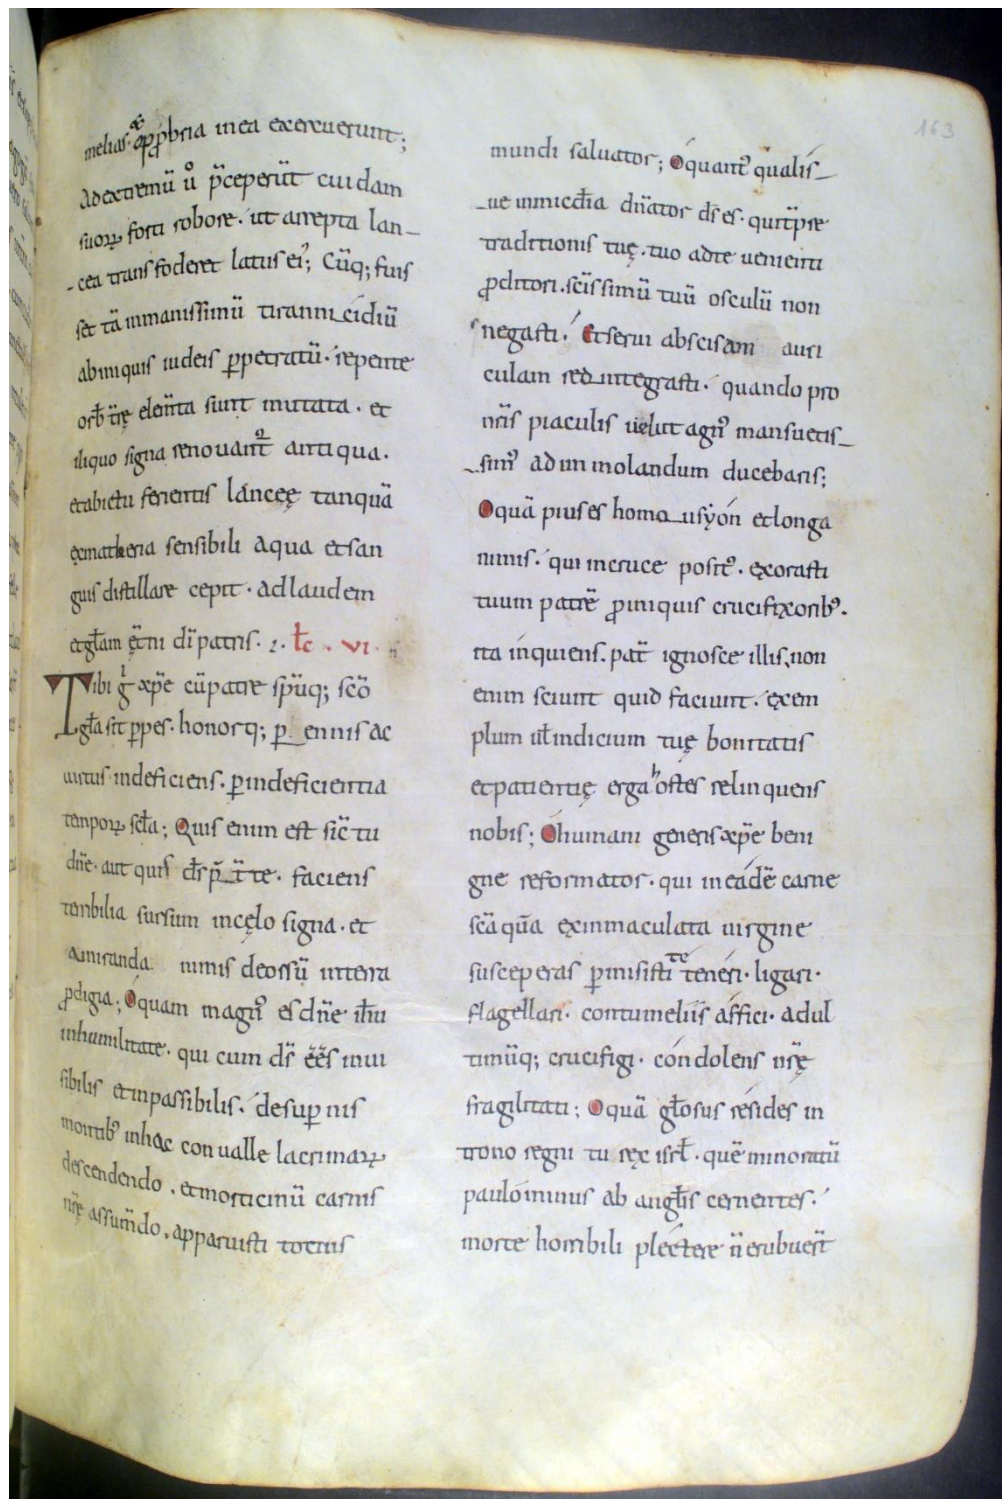 163
melias. & ꝓpbria in ea exercuerunt;
Ad extremū ū p̄ceperūt cuidam
suoꝝ forti robore. ut arrepta lan-
-cea transfoderet latus ei᾽; Cūq; fuis
set tā inmanissimū tirannicidiū
ab iniquis iudeis ꝑpetratū. repente
orb̄ tr̄ę elem̄ta sunt mutata. et
iliquo signa renouant᷑ antiqua.
et ab ictu ferientis lanceę tanquā
ex matheria sensibili aqua et san
guis distillare cepit. ad laudem
et gl̄am ęt̄ni dī patris. 2. Łc. VI.
Tibi gͥ xp̄e cū patre sp̄uq; scō
gl̄a sit ꝑpes. honorq; ꝑennis ac
uirtus indeficiens. ꝑ indeficientia
tempoꝝ scl̄a; Quis enim est sic̄ tu
dn̄e. aut quis d̄s p̄t̄ te. faciens
terribilia sursum in cęlo signa. et
amiranda nimis deorsū in terra
ꝓdigia; O quam magn᾽ es dn̄e ih̄u
in humilitate. qui cum d̄s ēēs inui
sibilis et inpassibilis. de supernis
montib᾽ in hac conualle lacrimaꝝ
descendendo. et morticinū carnis
nr̄ę assum̄do. apparuisti totius
mundi saluator; O quant᾽ qualis-
-ue in miced̄ia dn̄ator d̄s es. qui t̄pre
traditionis tuę. tuo ad te uenienti
ꝓditori. sc̄issimū tuū osculū non
negasti. Et serui abscisam auri
culam redintegrasti. quando pro
nr̄is piaculis uelut agn᾽ mansuetis-
-sim᾽ ad inmolandum ducebaris;
O quā pius es homousyon et longa
nimis. qui in cruce posit᾽. exorasti
tuum patrē ꝓ iniquis crucifixorib᾽.
ita inquiens. pat̄ ignosce illis. non
enim sciunt quid faciunt. exem
plum ul̄ indicium tuę bonitatis
et patientię erga hostes relinquens
nobis; O humani generis xp̄e beni
gne reformator. qui in eadē carne
scā quā ex inmaculata uirgine
susceperas ꝑmisisti te teneri. ligari.
flagellari. contumeliis affici. adul
timūq; crucifigi. condolens nr̄ę
fragilitati; O quā gl̄osus resides in
trono regni tu rex isrl̄. quē minoratū
paulo minus ab angl̄is cernentes.
morte horribili plectere n̄ erubuer̄t